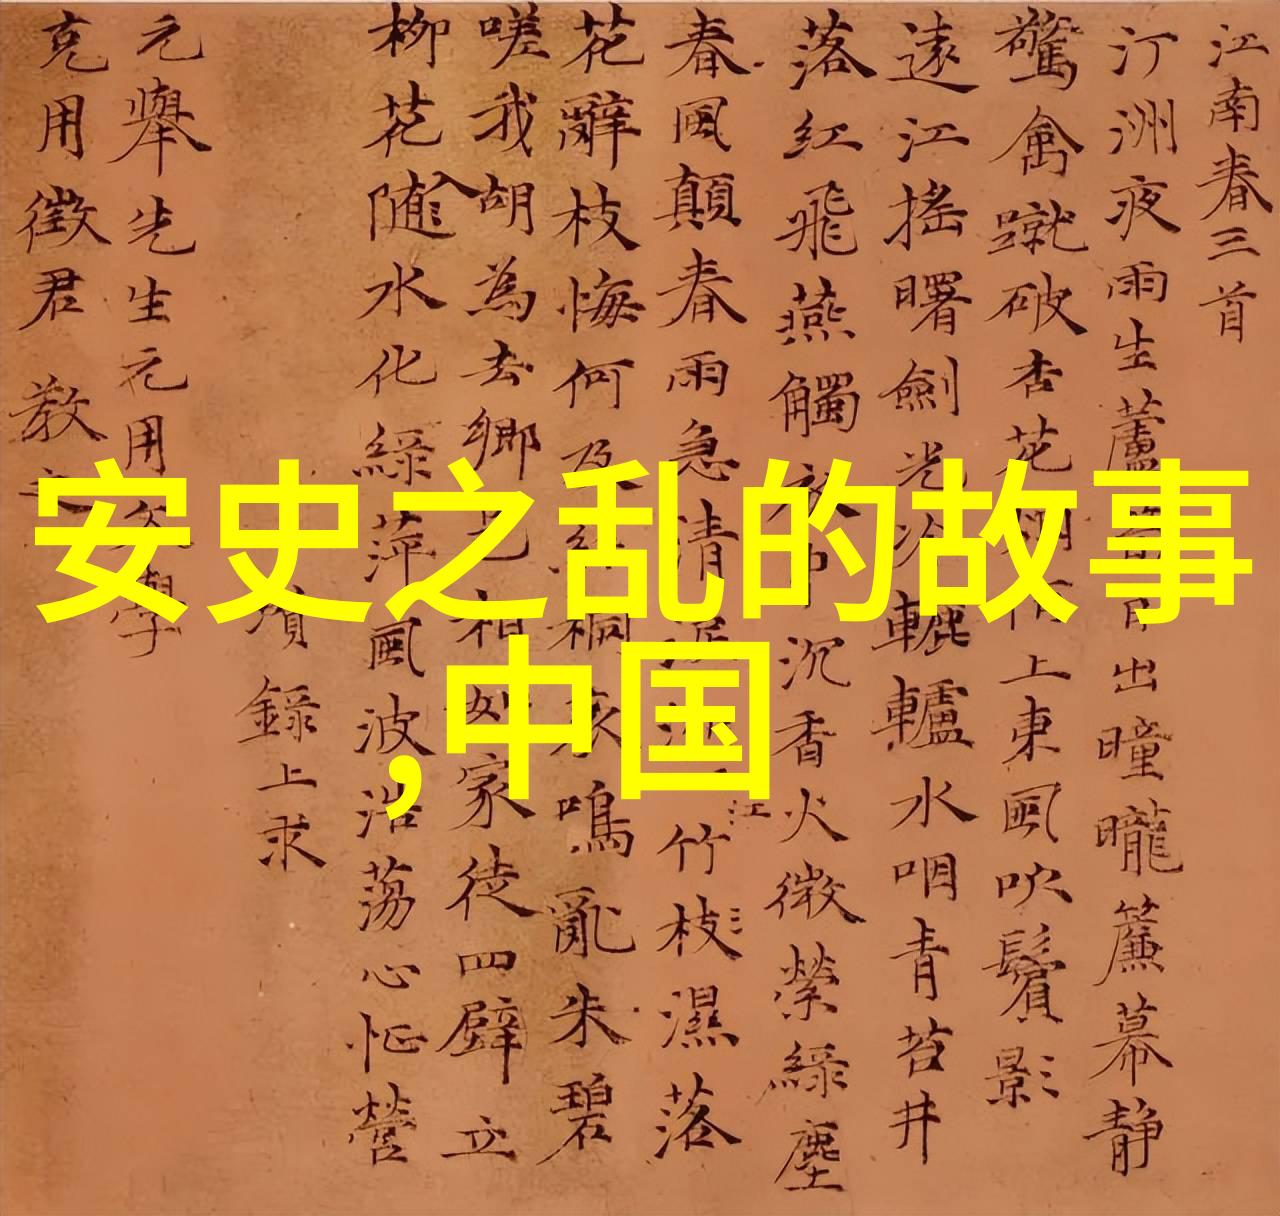 江南春三首
汀洲夜雨生蘆
日出曈曨簾幕静
驚禽蹴破杏花
上東風吹鬢影
遠江搖曙劍光冷轆轤水咽青苔井
落紅飛燕觸
沉香火微縈綠塵
春風顛春雨急清
江
竹枝濕落
花辭枝悔何及
桐哀鳴亂朱碧
嗟我胡為去鄉邑相如家徒四壁立
柳花入
随水化綠萍風波浩蕩心怔營
錄上求
元舉先生元用文學
克用徵君 教之
安史之乱的故事
,中国